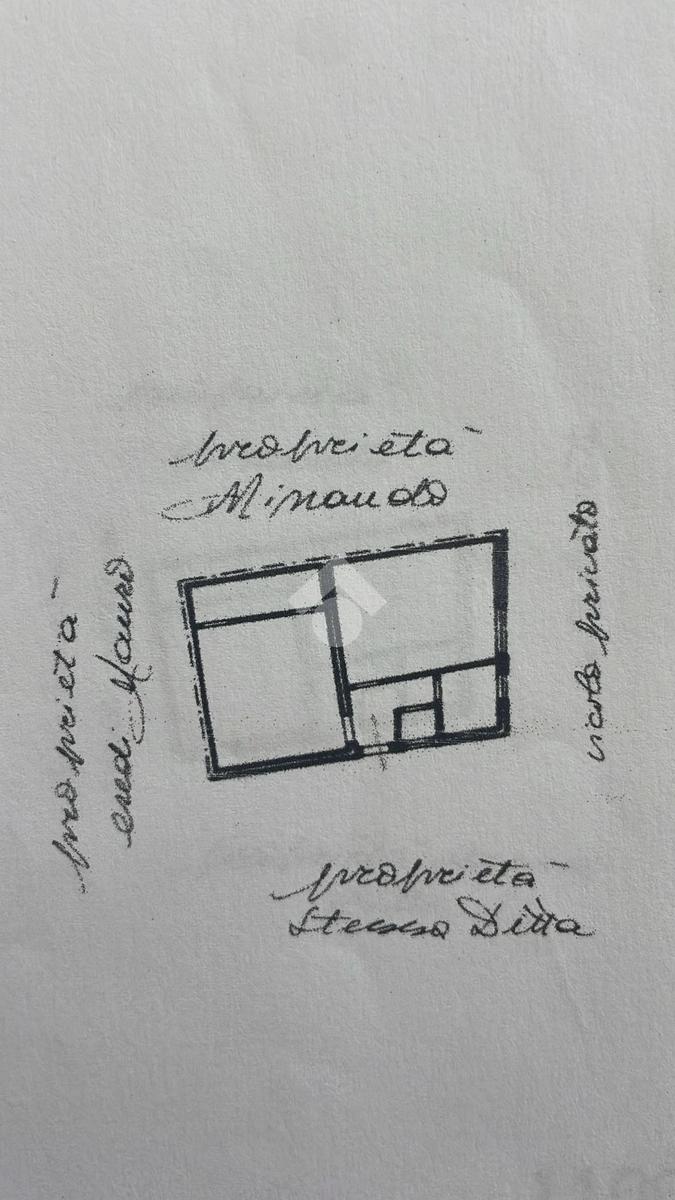 proprietà
Minaudo
proprietà
eredi Mauro
vicolo privato
proprietà
Stessa Ditta